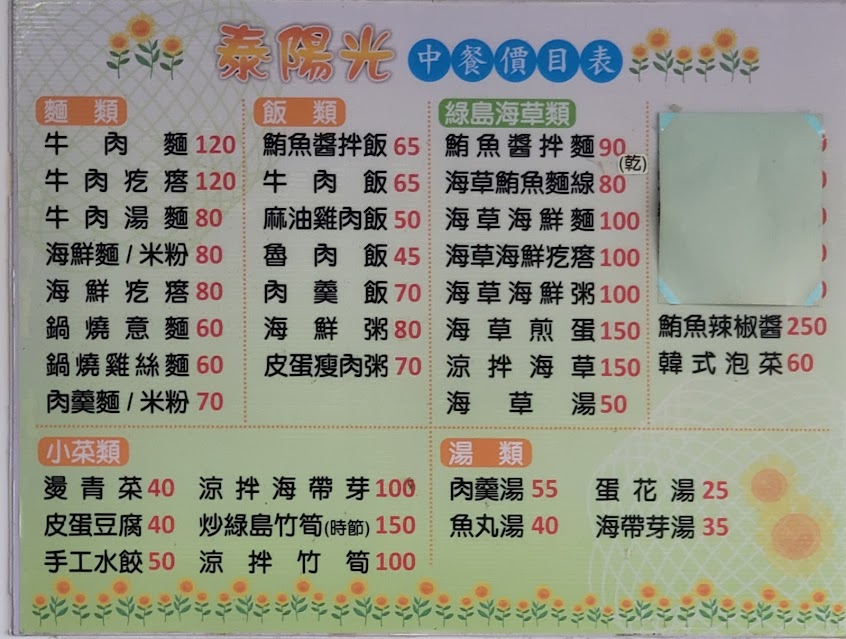 泰陽光 中餐價目表
麵類
牛肉麵 120
牛肉疙瘩 120
牛肉湯麵 80
海鮮麵/米粉 80
海鮮疙瘩 80
鍋燒意麵 60
鍋燒雞絲麵 60
肉羹麵/米粉 70
飯類
鮪魚醬拌飯 65
牛肉飯 65
麻油雞肉飯 50
魯肉飯 45
肉羹飯 70
海鮮粥 80
皮蛋瘦肉粥 70
綠島海草類
鮪魚醬拌麵 90
(乾)
海草鮪魚麵線 80
海草海鮮麵 100
海草海鮮疙瘩 100
海草海鮮粥 100
海草煎蛋 150
涼拌海草 150
海草湯 50
鮪魚辣椒醬 250
韓式泡菜 60
小菜類
燙青菜 40
皮蛋豆腐 40
手工水餃 50
涼拌海帶芽 100
炒綠島竹筍(時節) 150
涼拌竹筍 100
湯類
肉羹湯 55
魚丸湯 40
蛋花湯 25
海帶芽湯 35